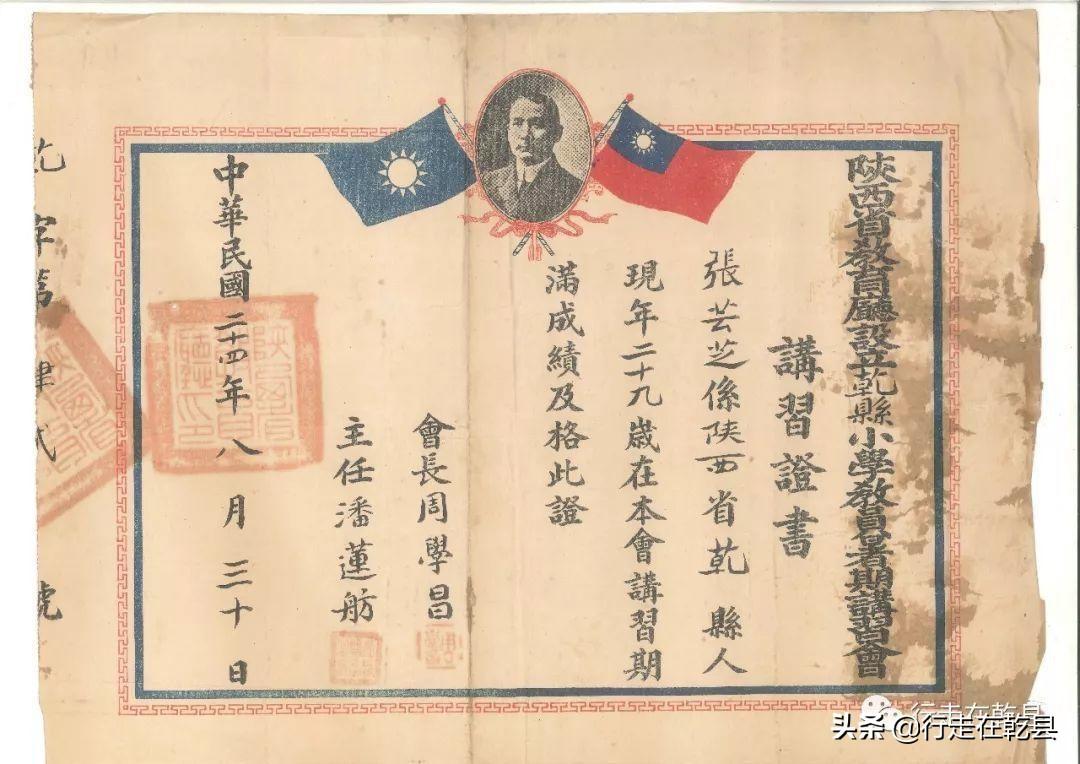 陝西省教育廳設立乾縣小學教員暑期講習會
講習證書
張芸芝係陝西省乾縣人
現年二十九歲在本會講習期
滿成績及格此證
會長周學昌
主任潘蓮舫
中華民國二十四年八月三十日
乾字第肆弍號
行走在乾县
头条@行走在乾县